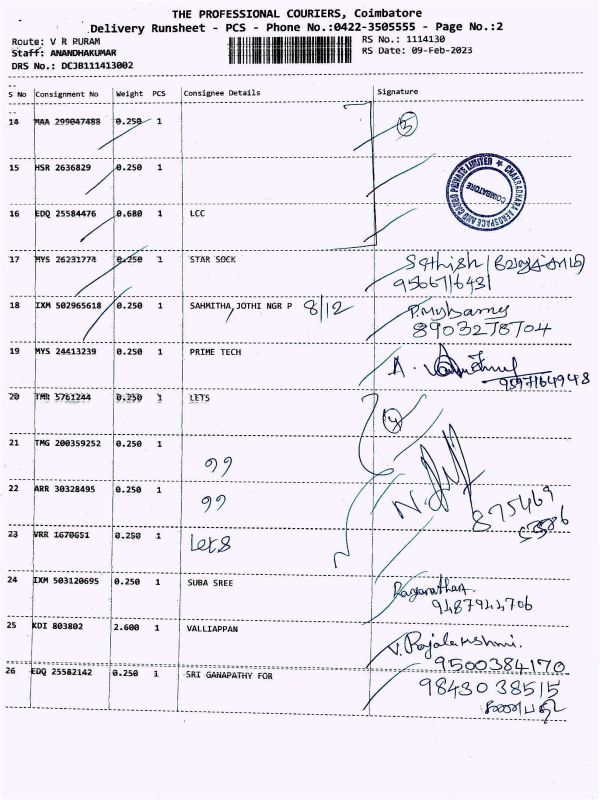 THE PROFESSIONAL COURIERS, Coimbatore
Delivery Runsheet - PCS - Phone No.:0422-3505555 - Page No.:2
Route: V R PURAM RS No.: 1114130
Staff: ANANDHAKUMAR RS Date: 09-Feb-2023
DRS No.: DCJB111413002
S No Consignment No Weight PCS Consignee Details Signature
14 MAA 299047488 0.250 1
15 HSR 2636829 0.250 1
CHAKRADHARA AEROSPACE AND CARGO PRIVATE LIMITED COIMBATORE
16 EDQ 25584476 0.680 1 LCC
17 MYS 26231774 0.250 1 STAR SOCK Sathish / வேலுச்சாமி
9566716431
18 IXM 502965618 0.250 1 SAHMITHA, JOTHI NGR P 8/12
8903278704
19 MYS 24413239 0.250 1 PRIME TECH
9597164948
20 TMR 5761244 0.250 1 LETS
21 TMG 200359252 0.250 1
22 ARR 30328495 0.250 1 875469
23 VRR 1670651 0.250 1 Lets
24 IXM 503120695 0.250 1 SUBA SREE
9487944706
25 KDI 803802 2.600 1 VALLIAPPAN V. Rajalakshmi.
9500384170
26 EDQ 25582142 0.250 1 SRI GANAPATHY FOR 9843038515